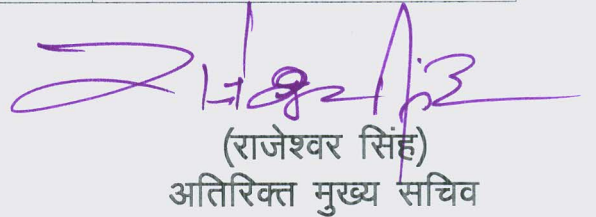 (राजेश्वर सिंह)
अतिरिक्त मुख्य सचिव